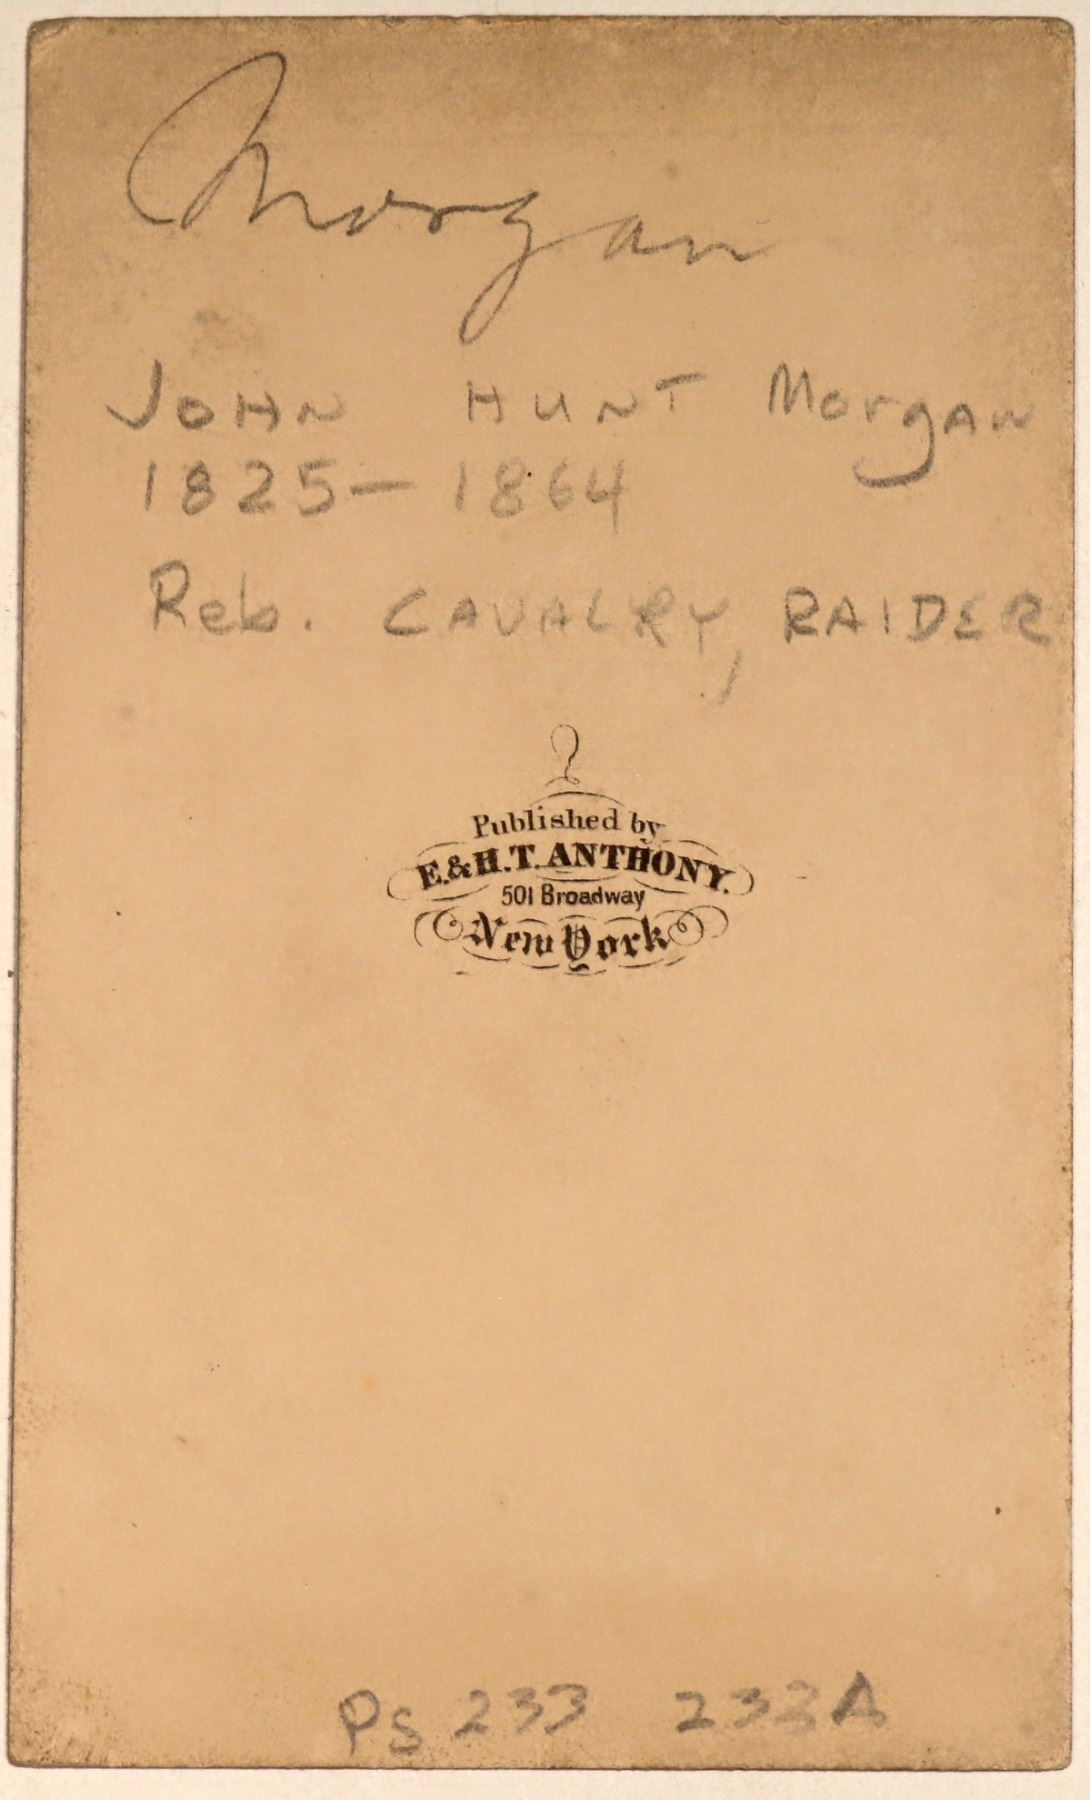 Morgan
JOHN HUNT Morgan
1825-1864
Reb. CAVALRY, RAIDER
Published by
E. & H. T. ANTHONY.
501 Broadway
New York
Ps 233 233A